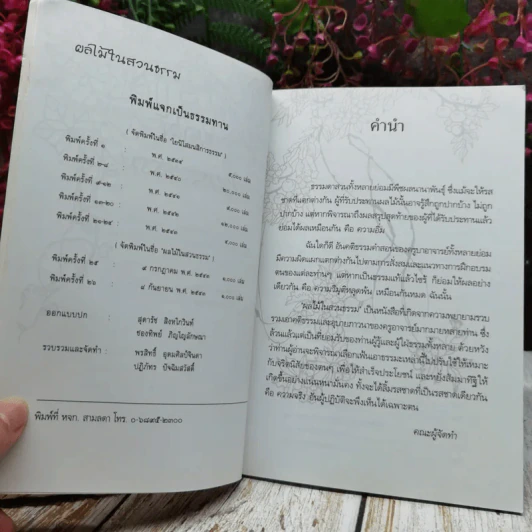 ผลไม้ในสวนธรรม
พิมพ์แจกเป็นธรรมทาน
( จัดพิมพ์ในชื่อ "โยนิโสมนสิการธรรม" )
พิมพ์ครั้งที่ ๑ พ.ศ. ๒๕๓๙ ๕,๐๐๐ เล่ม
พ.ศ.
พ.ศ.
พ.ศ.
พ.ศ.
( จัดพิมพ์ในชื่อ "ผลไม้ในสวนธรรม" )
พิมพ์ครั้งที่ ๒๕ ๙ กรกฎาคม
พิมพ์ครั้งที่ ๒๖ ๙ กันยายน พ.ศ.
ออกแบบปก สุดารัช สิงหโกวินท์
ช่อทิพย์
รวบรวมและจัดทำ พรสิทธิ์ อุดมศิลป์จินดา
ปฏิภัทร ปัจฉิมสวัสดิ์
พิมพ์ที่ หจก. สามลดา โทร. ๐-๖๘๙๕-๒๓๐๐
คำนำ
ธรรมดาสวนทั้งหลายย่อมมีพืชผลนานาพันธุ์ ซึ่งแม้จะให้รส
ชาติที่แตกต่างกัน ผู้ที่รับประทานผลไม้นั้นอาจรู้สึกถูกปากบ้าง ไม่ถูก
ปากบ้าง แต่หากพิจารณาถึงผลสรุปสุดท้ายของผู้ที่ได้รับประทานแล้ว
ย่อมได้ผลเหมือนกัน คือ ความอิ่ม
ฉันใดก็ดี อันคติธรรมคำสอนของครูบาอาจารย์ทั้งหลายย่อม
มีความผิดแผกแตกต่างกันไปตามภูมิหลังและแนวทางการฝึกอบรม
ตนของแต่ละท่านๆ แต่หากเป็นธรรมแท้แล้วไซร้ ก็ย่อมให้ผลอย่าง
เดียวกัน คือ ความวิมุตติหลุดพ้น เหมือนกันหมด ฉันนั้น
"ผลไม้ในสวนธรรม" เป็นหนังสือที่เกิดจากความพยายามรวบ
รวมเอาคติธรรมและอุบายภาวนาของครูอาจารย์มากมายหลายท่าน ซึ่ง
ล้วนแล้วแต่เป็นที่ยอมรับของท่านผู้รู้และผู้ใฝ่ธรรมทั้งหลาย ด้วยหวัง
ว่าท่านผู้อ่านจะพิจารณาเลือกเฟ้นเอาธรรมะเหล่านี้ไปปรับใช้ให้เหมาะ
กับจริตนิสัยของตนๆ เพื่อให้สำเร็จประโยชน์ และหยั่งสัมมาทิฐิให้
เกิดขึ้นอย่างแน่นหนามั่นคง ทั้งจะได้ลิ้มรสชาติที่เป็นรสชาติเดียวกัน
คือ ความจริง อันผู้ปฏิบัติจะพึงเห็นได้เฉพาะตน
คณะผู้จัดทำ